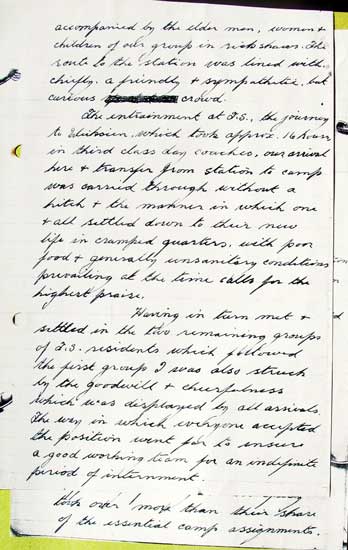 accompanied by the elder men, women +
children of our group in rickshaws. The
route to the station was lined with,
chiefly, a friendly + sympathetic, but
curious crowd.
The entrainment at T.S., the journey
to Weihsien, which took approx. 16 hours
in third class day coaches, our arrival
here + transfer from station to camp
was carried through without a
hitch + the manner in which one
+ all settled down to their new
life in cramped quarters, with poor
food + generally unsanitary conditions
prevailing at the time calls for the
highest praise.
Having in turn met +
settled in the two remaining groups
of T.S. residents which followed
the first group I was also struck
by the goodwill + cheerfulness
which was displayed by all arrivals.
The way in which everyone accepted
the position went far to insure
a good working team for an indefinite
period of internment.
took over more than their share
of the essential camp assignments.